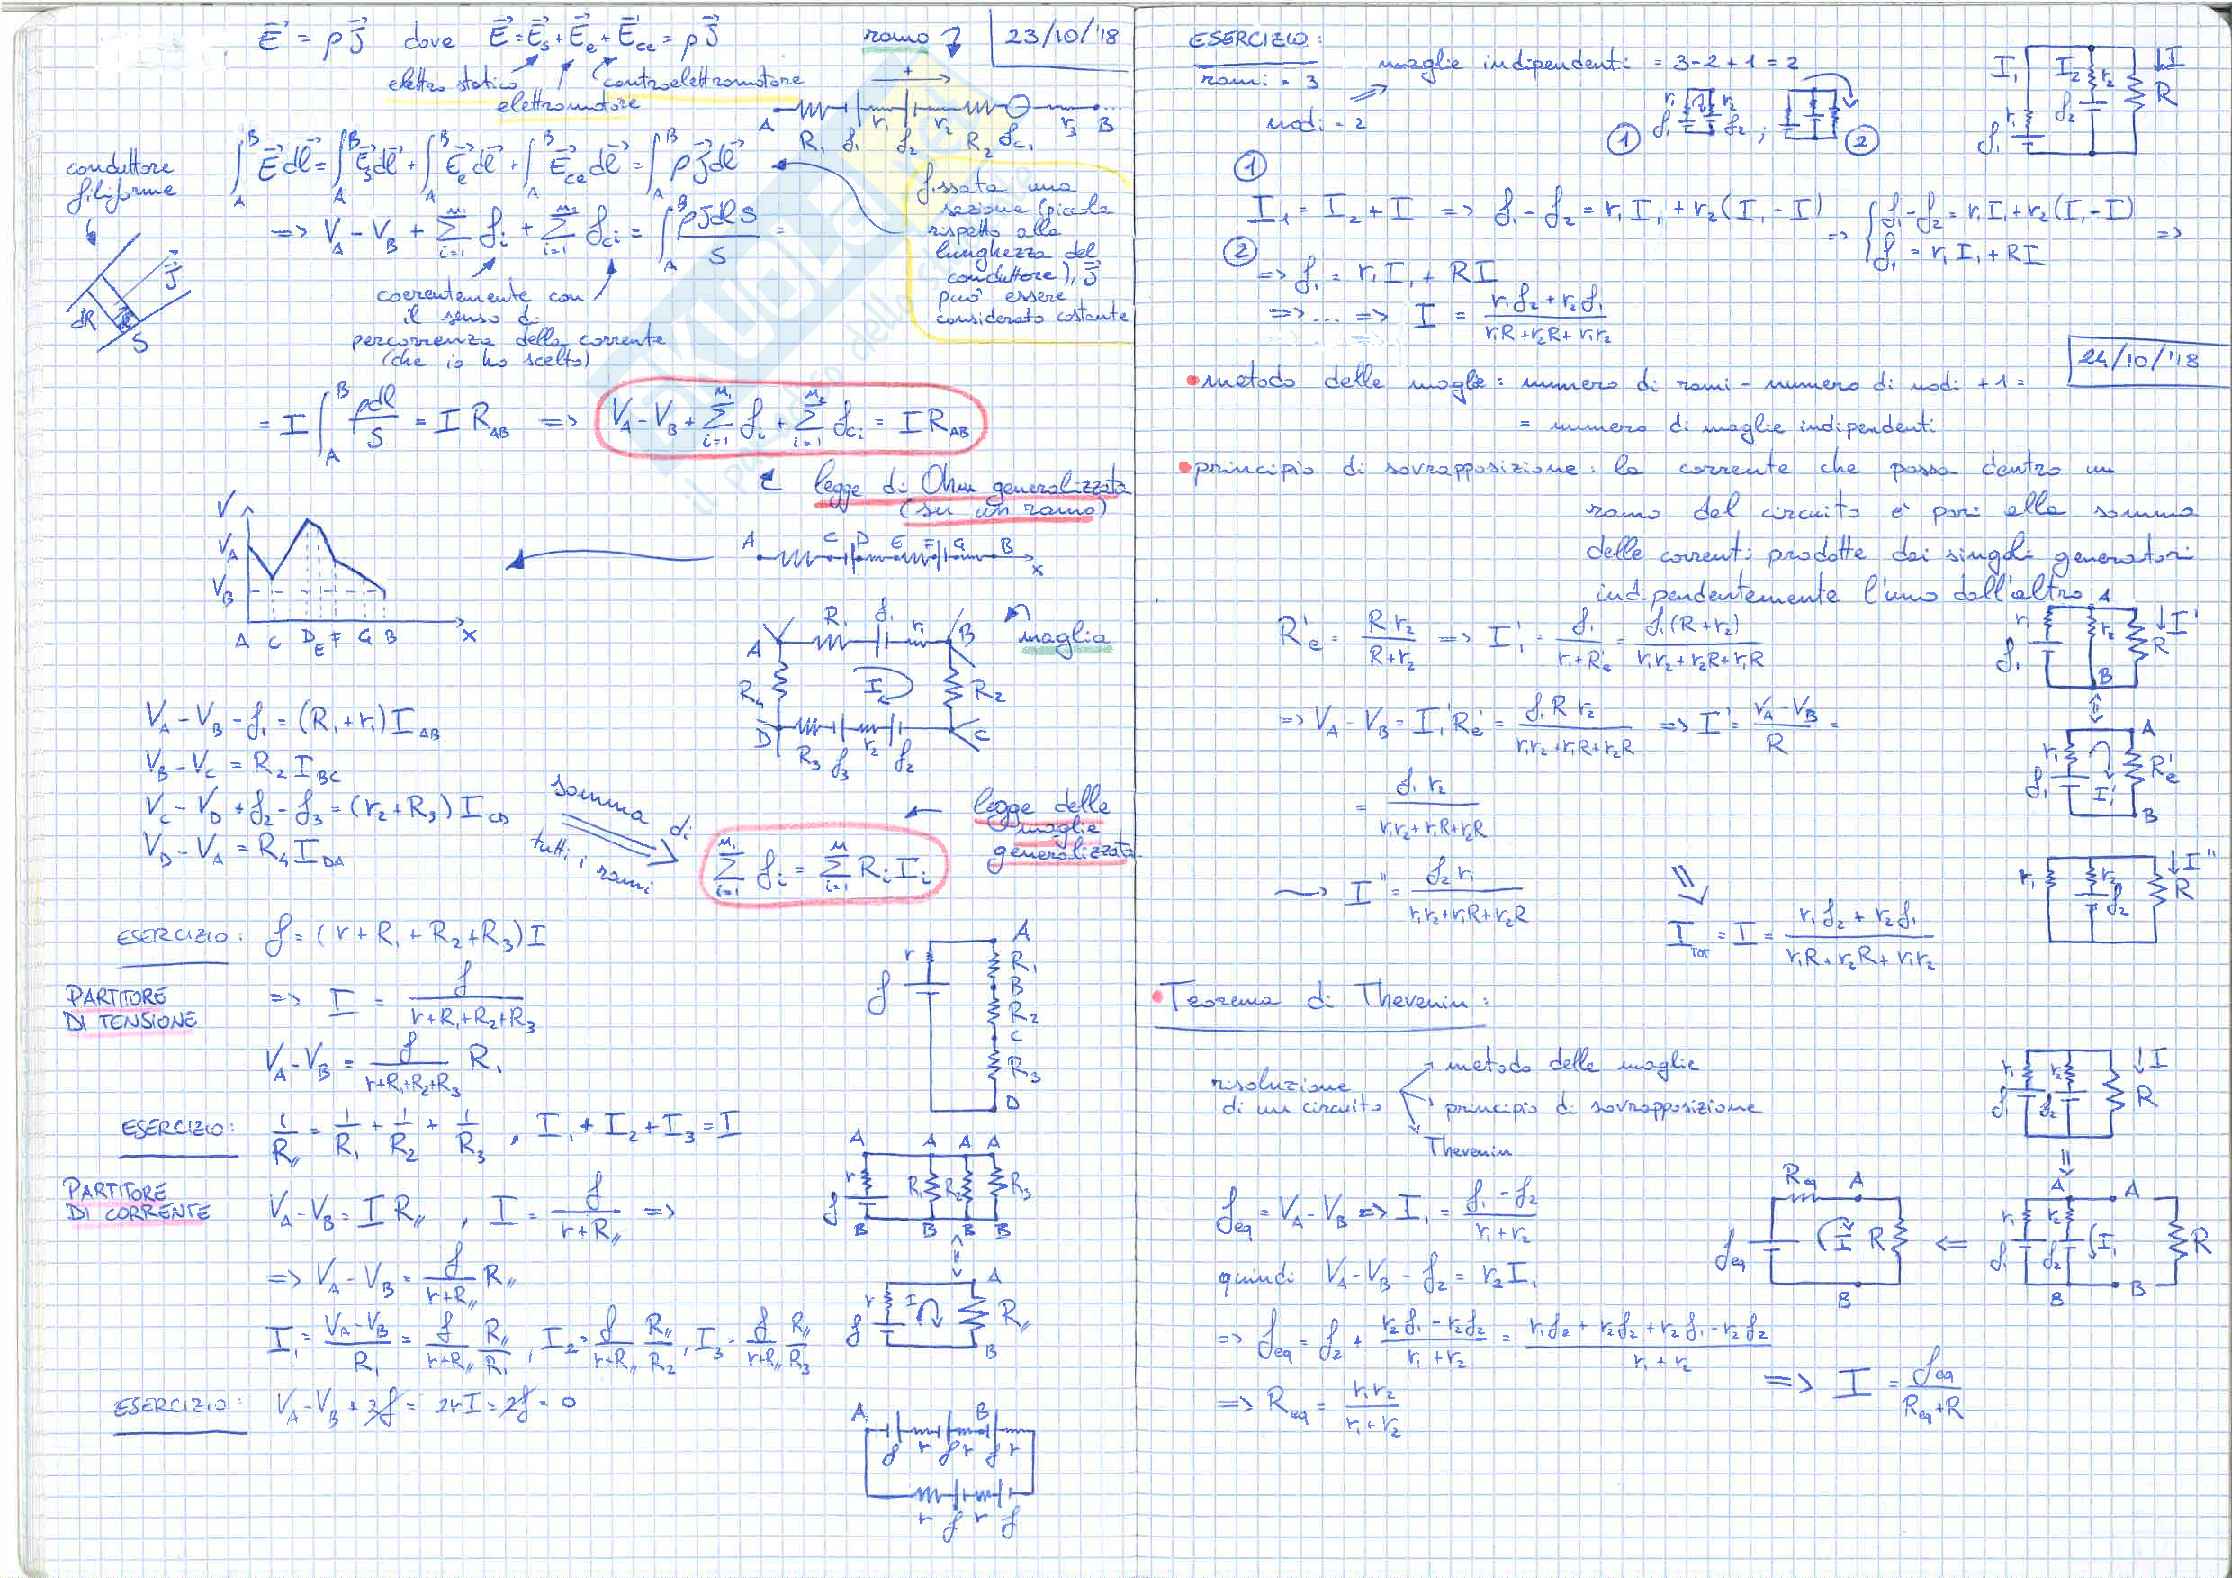 E⃗ = ρJ⃗ dove E⃗ = E⃗s + E⃗e + E⃗ce = ρJ⃗
elettrostatico
controelettromotore
elettromotore
ramo
23/10/'18
+
A R₁ f₁ r₁ f₂ r₂ R₂ fc₁ r₃ B...
conduttore
filiforme
∫_A^B E⃗dl⃗ = ∫_A^B E⃗s dl⃗ + ∫_A^B E⃗e dl⃗ + ∫_A^B E⃗ce dl⃗ = ∫_A^B ρJ⃗dl⃗
=> V_A - V_B + Σ_{i=1}^{m₁} fi + Σ_{i=1}^{m₂} fci = ∫_A^B ρJdlS/S =
fissata una
sezione (piccola
rispetto alla
lunghezza del
conduttore), J⃗
può essere
considerato costante
J⃗
dR
S
coerentemente con
il senso di
percorrenza della corrente
(che io ho scelto)
= I ∫_A^B ρdl/S = I R_AB => V_A - V_B + Σ_{i=1}^{m₁} fi + Σ_{i=1}^{m₂} fci = I R_AB
legge di Ohm generalizzata
(su un ramo)
V
V_A
V_B
A C D E F G B x
A C D E F G B x
maglia
A R₁ f₁ r₁ B
R₄ I R₂
D R₃ f₃ r₂ f₂ C
V_A - V_B - f₁ = (R₁ + r₁) I_AB
V_B - V_C = R₂ I_BC
V_C - V_D + f₂ - f₃ = (r₂ + R₃) I_CD
V_D - V_A = R₄ I_DA
somma di
tutti i rami
Σ_{i=1}^{m₁} fi = Σ_{i=1}^{m} Ri Ii
legge delle
maglie
generalizzata
ESERCIZIO: f = (r + R₁ + R₂ + R₃) I
PARTITORE
DI TENSIONE
=> I = f/(r+R₁+R₂+R₃)
V_A - V_B = f/(r+R₁+R₂+R₃) R₁
r f A R₁ B R₂ C R₃ D
ESERCIZIO: 1/R// = 1/R₁ + 1/R₂ + 1/R₃ , I₁ + I₂ + I₃ = I
PARTITORE
DI CORRENTE
V_A - V_B = I R// , I = f/(r+R//) =>
=> V_A - V_B = f/(r+R//) R//
I₁ = (V_A-V_B)/R₁ = f/(r+R//) R///R₁ , I₂ = f/(r+R//) R///R₂ , I₃ = f/(r+R//) R///R₃
A A A A
r f R₁ R₂ R₃
B B B B
A
r f I R//
B
ESERCIZIO: V_A - V_B + 2f = 2rI = 2f = 0
A B
f r f r f r
r f r f
ESERCIZIO:
rami = 3
nodi = 2
maglie indipendenti = 3-2+1 = 2
① r₁ f₁ r₂ f₂ ; ②
I₁ I₂ I
r₁ f₁ r₂ f₂ R
①
I₁ = I₂ + I => f₁ - f₂ = r₁I₁ + r₂(I₁ - I) => { f₁ - f₂ = r₁I₁ + r₂(I₁ - I)
f₁ = r₁I₁ + RI =>
②
=> f₁ = r₁I₁ + RI
=> ... => I = (r₁f₂ + r₂f₁)/(r₁R + r₂R + r₁r₂)
24/10/'18
• metodo delle maglie: numero di rami - numero di nodi + 1 =
= numero di maglie indipendenti
• principio di sovrapposizione: la corrente che passa dentro un
ramo del circuito è pari alla somma
delle correnti prodotte dai singoli generatori
indipendentemente l'uno dall'altro
R'e = Rr₂/(R+r₂) => I'₁ = f₁/(r₁+R'e) = f₁(R+r₂)/(r₁r₂+r₂R+r₁R)
A
r₁ f₁ r₂ R I'
B
=> V_A - V_B = I'₁R'e = f₁Rr₂/(r₁r₂+r₁R+r₂R) => I' = (V_A-V_B)/R =
= f₁r₂/(r₁r₂+r₁R+r₂R)
A
r₁ f₁ I'₁ R'e
B
~> I'' = f₂r₁/(r₁r₂+r₁R+r₂R)
I_TOT = I = (r₁f₂ + r₂f₁)/(r₁R + r₂R + r₁r₂)
r₁ r₂ f₂ R I''
• Teorema di Thevenin:
risoluzione
di un circuito
metodo delle maglie
principio di sovrapposizione
Thevenin
r₁ f₁ r₂ f₂ R I
feq = V_A - V_B => I₁ = (f₁ - f₂)/(r₁ + r₂)
quindi V_A - V_B - f₂ = r₂I₁
=> feq = f₂ + (r₂f₁ - r₂f₂)/(r₁ + r₂) = (r₁f₂ + r₂f₂ + r₂f₁ - r₂f₂)/(r₁ + r₂)
=> Req = r₁r₂/(r₁+r₂)
=> I = feq/(Req + R)
Req A
feq I R
B
<=
A A
r₁ f₁ r₂ f₂ I₁ R
B B